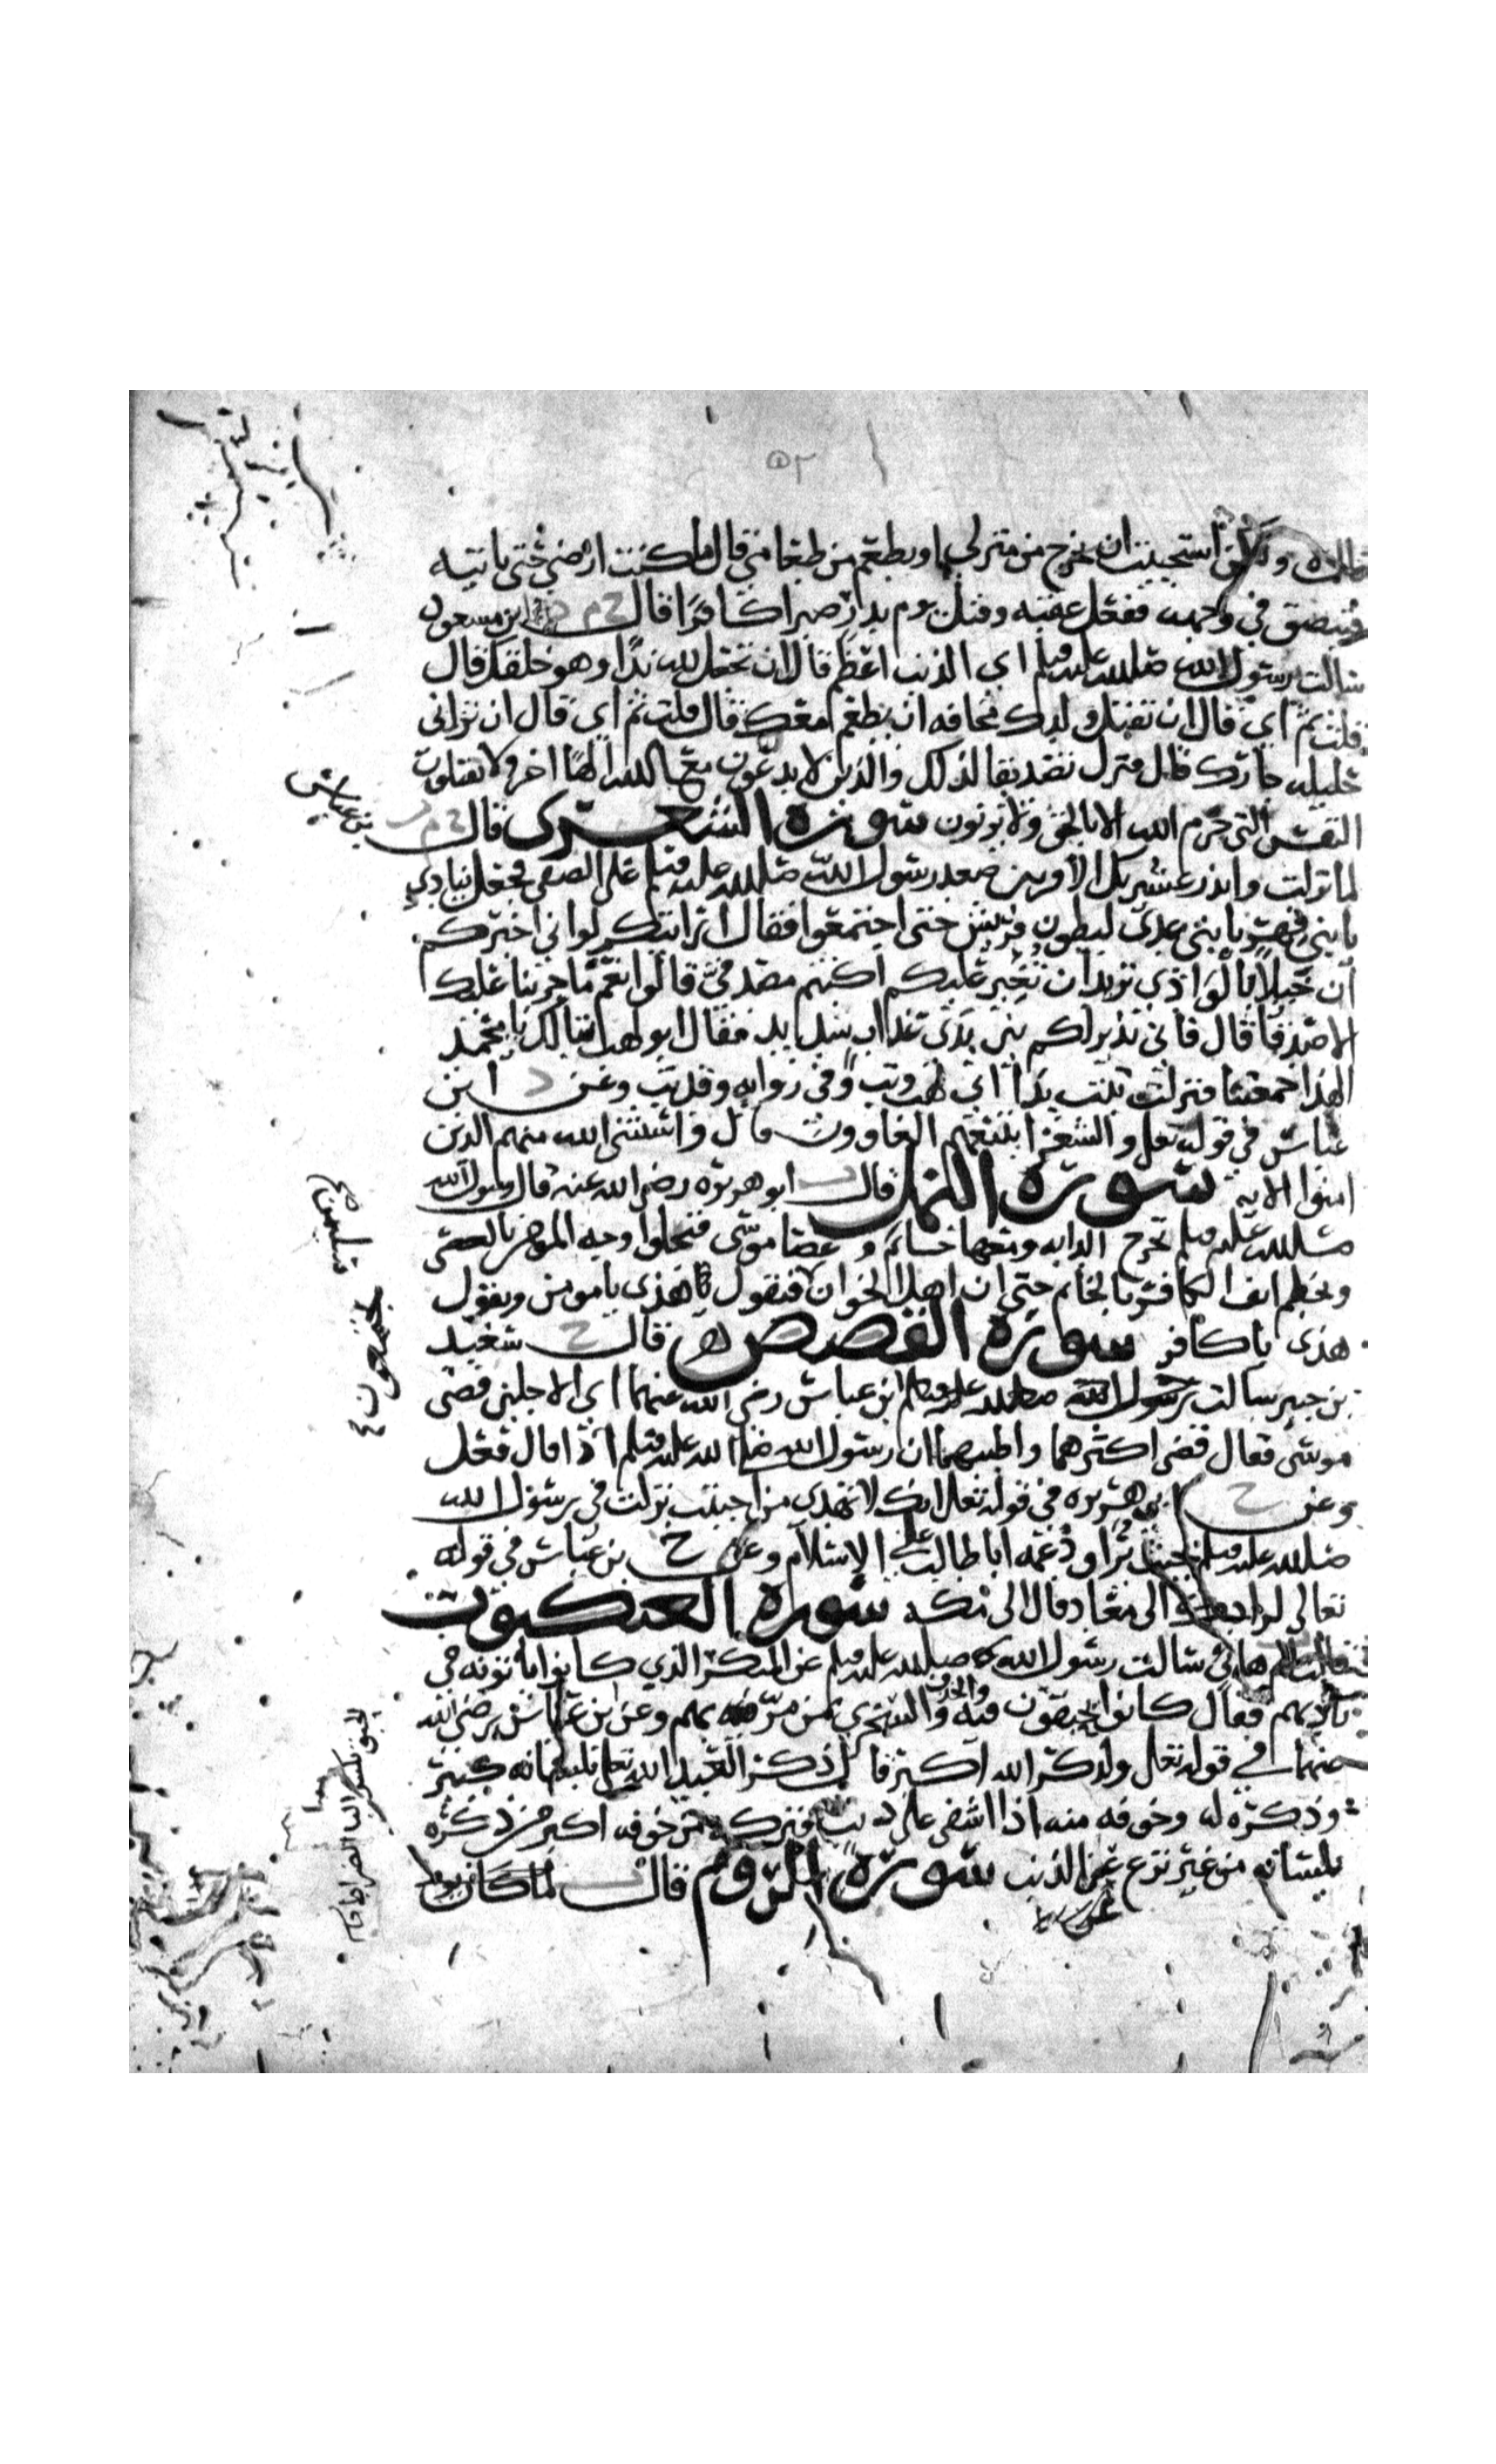 ٥٢
ولكن استحييت ان يخرج من منزلي او يطعم من طعامي قال ما كنت ارضى حتى تاتيه
فتبصق في وجهه ففعل عقبه وقتل يوم بدر صبرا كافرا قال خ م د ابن مسعود
سالت رسول الله صلى الله عليه وسلم اي الذنب اعظم قال ان تجعل لله ندا وهو خلقك قال
قلت ثم اي قال ان تقتل ولدك مخافه ان يطعم معك قال قلت ثم اي قال ان تزاني
حليله جارك قال فنزل تصديقا لذلك والذين لا يدعون مع الله الها اخر ولا يقتلون
النفس التي حرم الله الا بالحق ولا يزنون سورة الشعرى قال خ م
بن عباس
لما نزلت وانذر عشيرتك الاقربين صعد رسول الله صلى الله عليه وسلم على الصفى فجعل ينادي
يا بني فهر يا بني عدي لبطون قريش حتى اجتمعوا فقال ارايتكم لو اني اخبرتكم
ان خيلا بالوادي تريد ان تغير عليكم اكنتم مصدقي قالوا نعم ما جربنا عليك
الا صدقا قال فاني نذير لكم بين يدي عذاب شديد فقال ابو لهب تبا لك يا محمد
الهذا جمعتنا فنزلت تبت يدا ابي لهب وتب وفي روايه وقد تب وعن د ابن
عباس في قوله تعلى والشعرا يتبعهم الغاوون قال واستثنى الله منهم الذين
امنوا الايه سورة النمل قال ابو هريره رضي الله عنه قال رسول الله
صلى الله عليه وسلم تخرج الدابه ومعها خاتم وعصا موسى فتجلوا وجه المومن بالعصى
سليمن صح
وتخطم انف الكافر بالخاتم حتى ان اهل الخوان فتقول هذى يا مومن ويقول
يجتمعون
هذى يا كافر سورة القصص قال خ سعيد
بن جبير سالت ابن عباس رضي الله عنهما اي الاجلين قضى
موسى فقال قضى اكثرهما واطيبهما ان رسول الله صلى الله عليه وسلم اذا قال فعل
وعن خ ابي هريره في قوله تعلى انك لا تهدي من احببت نزلت في رسول الله
صلى الله عليه وسلم حيث يراود عمه ابا طالب على الاسلام وعن خ بن عباس في قوله
تعالى لرادك الى معاد قال الى مكه سورة العنكبوت
قالت ام هاني سالت رسول الله صلى الله عليه وسلم عن المنكر الذي كانوا ياتونه في
ناديهم فقال كانوا يحبقون فيه والخذف والسخري بمن مر بهم وعن بن عباس رضي الله
عنهما في قوله تعلى ولذكر الله اكبر قال ذكر العبد الله تعلى بلسانه كبير
وذكره له وخوفه منه اذا اشفى على ذنب فتركه من خوفه اكبر من ذكره
بلسانه من غير نزع عن الذنب سورة الروم قال لما كان يوم